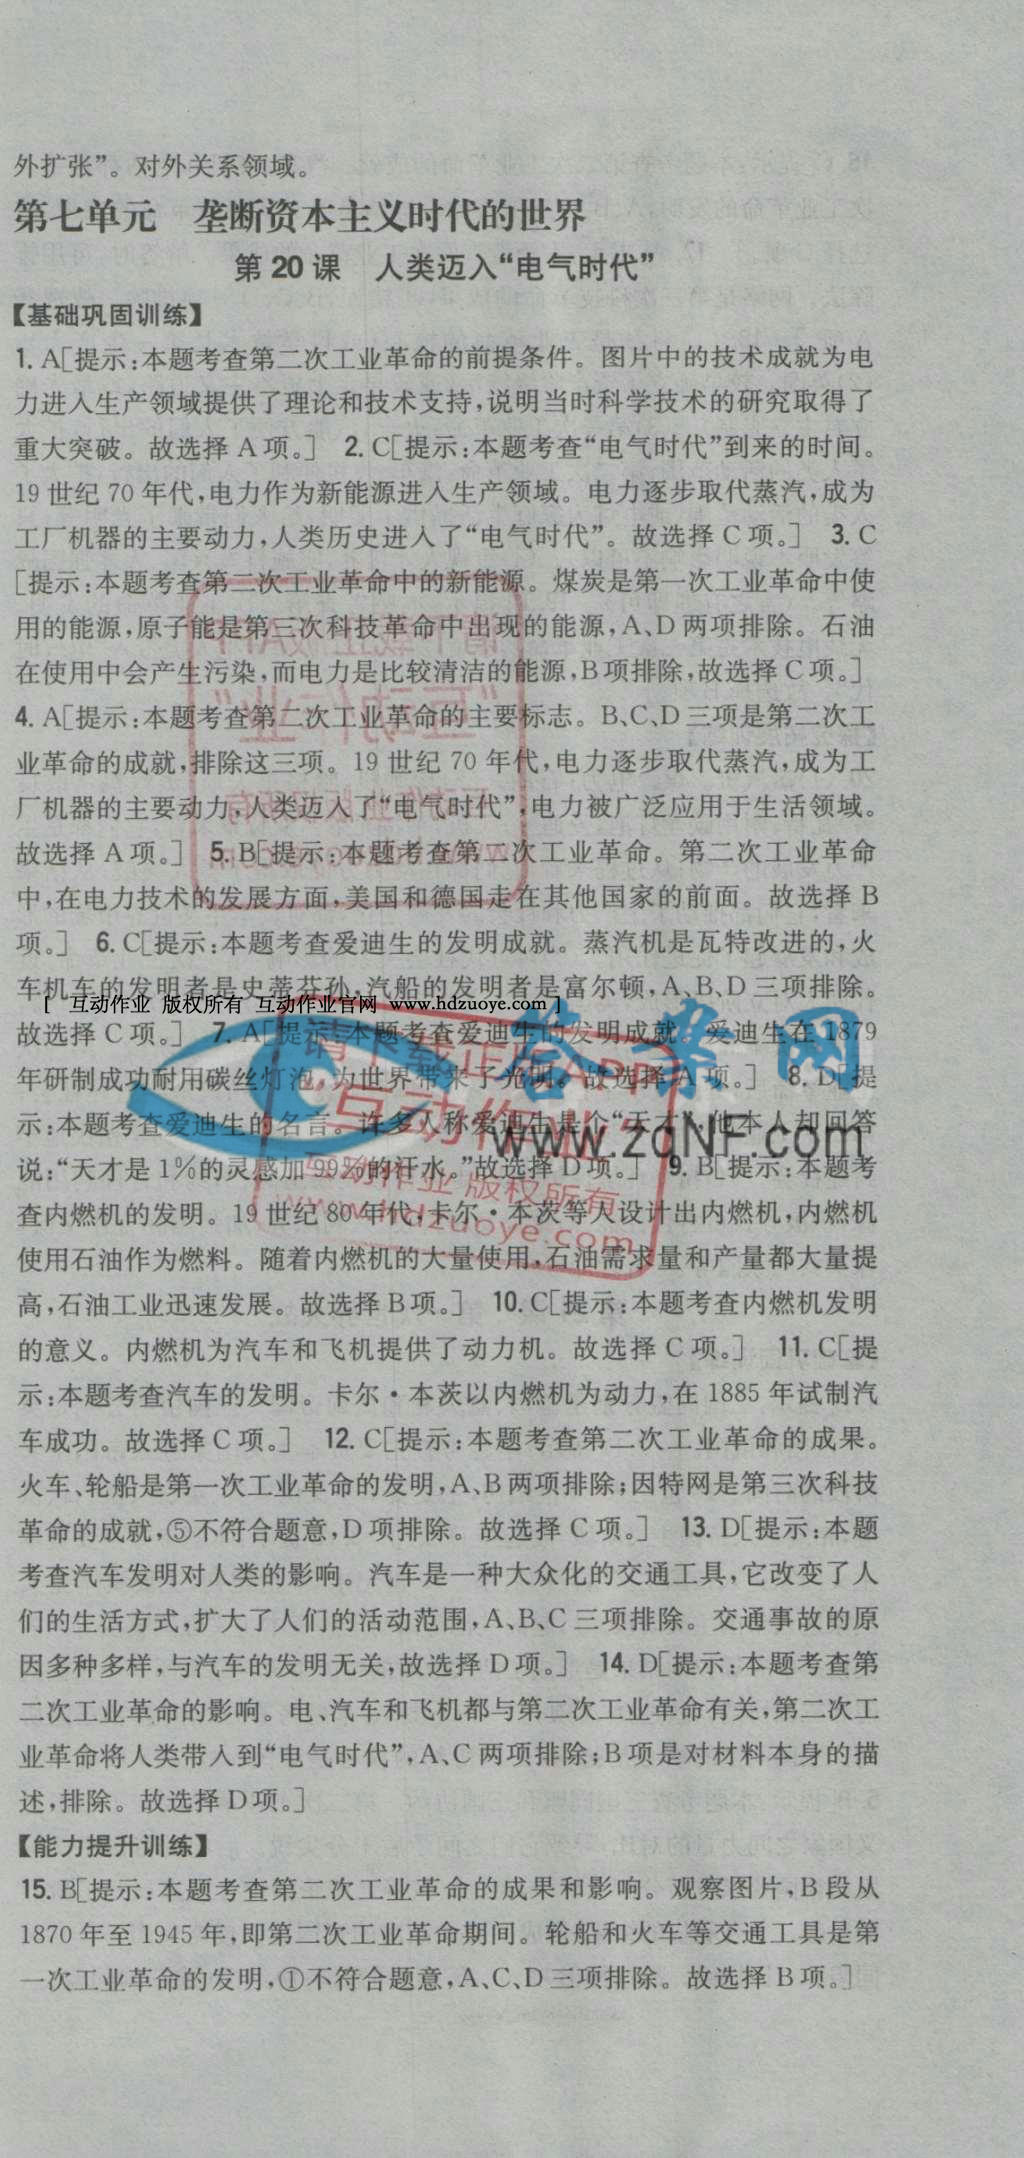 外扩张”。对外关系领域。
第七单元　垄断资本主义时代的世界
第 20 课　人类迈入“电气时代”
【基础巩固训练】
1. A[提示:本题考查第二次工业革命的前提条件。图片中的技术成就为电
力进入生产领域提供了理论和技术支持,说明当时科学技术的研究取得了
重大突破。故选择 A 项。]　2. C[提示:本题考查“电气时代”到来的时间。
19 世纪 70 年代,电力作为新能源进入生产领域。电力逐步取代蒸汽,成为
工厂机器的主要动力,人类历史进入了“电气时代”。故选择 C 项。]　3. C
[提示:本题考查第二次工业革命中的新能源。煤炭是第一次工业革命中使
用的能源,原子能是第三次科技革命中出现的能源,A、D 两项排除。石油
在使用中会产生污染,而电力是比较清洁的能源,B 项排除,故选择 C 项。]
4. A[提示:本题考查第二次工业革命的主要标志。B、C、D 三项是第二次工
业革命的成就,排除这三项。19 世纪 70 年代,电力逐步取代蒸汽,成为工
厂机器的主要动力,人类迈入了“电气时代”,电力被广泛应用于生活领域。
故选择 A 项。]　5. B[提示:本题考查第二次工业革命。第二次工业革命
中,在电力技术的发展方面,美国和德国走在其他国家的前面。故选择 B
项。]　6. C[提示:本题考查爱迪生的发明成就。蒸汽机是瓦特改进的,火
车机车的发明者是史蒂芬孙,汽船的发明者是富尔顿,A、B、D 三项排除。
[ 互动作业 版权所有 互动作业官网 www.hdzuoye.com ]
故选择 C 项。]　7. A[提示:本题考查爱迪生的发明成就。爱迪生在 1879
年研制成功耐用碳丝灯泡,为世界带来了光明。故选择 A 项。]　8. D[提
示:本题考查爱迪生的名言。许多人称爱迪生是个“天才”,他本人却回答
说:“天才是 1%的灵感加 99%的汗水。”故选择 D 项。]　9. B[提示:本题考
查内燃机的发明。19 世纪 80 年代,卡尔·本茨等人设计出内燃机,内燃机
使用石油作为燃料。随着内燃机的大量使用,石油需求量和产量都大量提
高,石油工业迅速发展。故选择 B 项。]　10. C[提示:本题考查内燃机发明
的意义。内燃机为汽车和飞机提供了动力机。故选择 C 项。]　11. C[提
示:本题考查汽车的发明。卡尔·本茨以内燃机为动力,在 1885 年试制汽
车成功。故选择 C 项。]　12. C[提示:本题考查第二次工业革命的成果。
火车、轮船是第一次工业革命的发明,A、B 两项排除;因特网是第三次科技
革命的成就,⑤不符合题意,D 项排除。故选择 C 项。]　13. D[提示:本题
考查汽车发明对人类的影响。汽车是一种大众化的交通工具,它改变了人
们的生活方式,扩大了人们的活动范围,A、B、C 三项排除。交通事故的原
因多种多样,与汽车的发明无关,故选择 D 项。]　14. D[提示:本题考查第
二次工业革命的影响。电、汽车和飞机都与第二次工业革命有关,第二次工
业革命将人类带入到“电气时代”,A、C 两项排除;B 项是对材料本身的描
述,排除。故选择 D 项。]
【能力提升训练】
15. B[提示:本题考查第二次工业革命的成果和影响。观察图片,B 段从
1870 年至 1945 年,即第二次工业革命期间。轮船和火车等交通工具是第
一次工业革命的发明,①不符合题意,A、C、D 三项排除。故选择 B 项。]
答案网
www.zqNF.com
请下载正版App
“互动作业”
互动作业 版权所有
www.hdzuoye.com